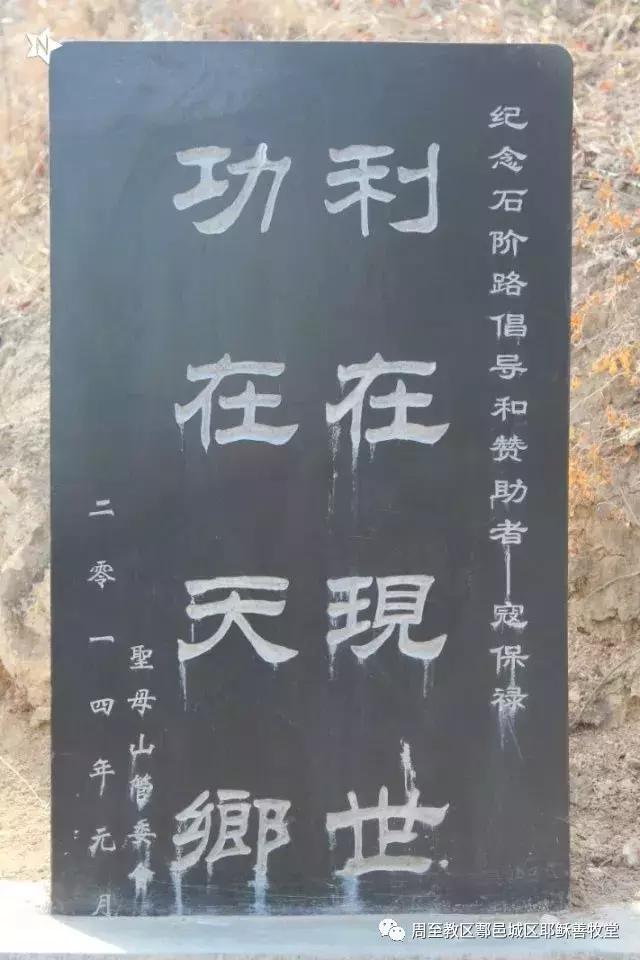 纪念石阶路倡导和赞助者—寇保禄
利在現世
功在天鄉
聖母山管委会
二零一四年元月
周至教区鄠邑城区耶稣善牧堂
N